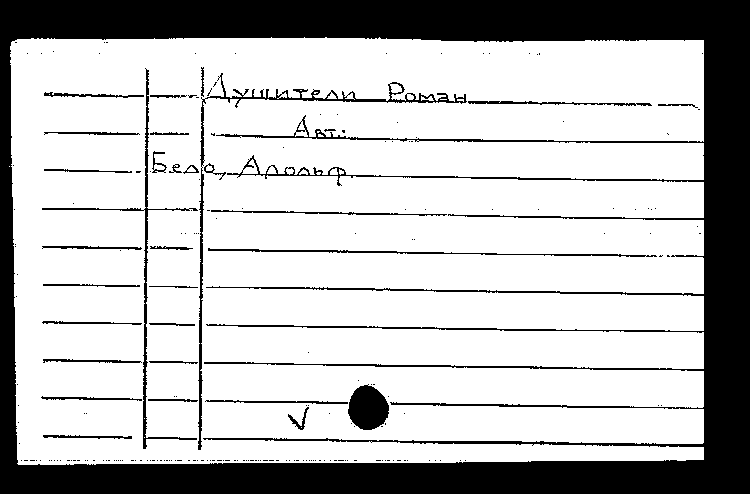 Душители Роман
Авт.:
Бело, Адольф.